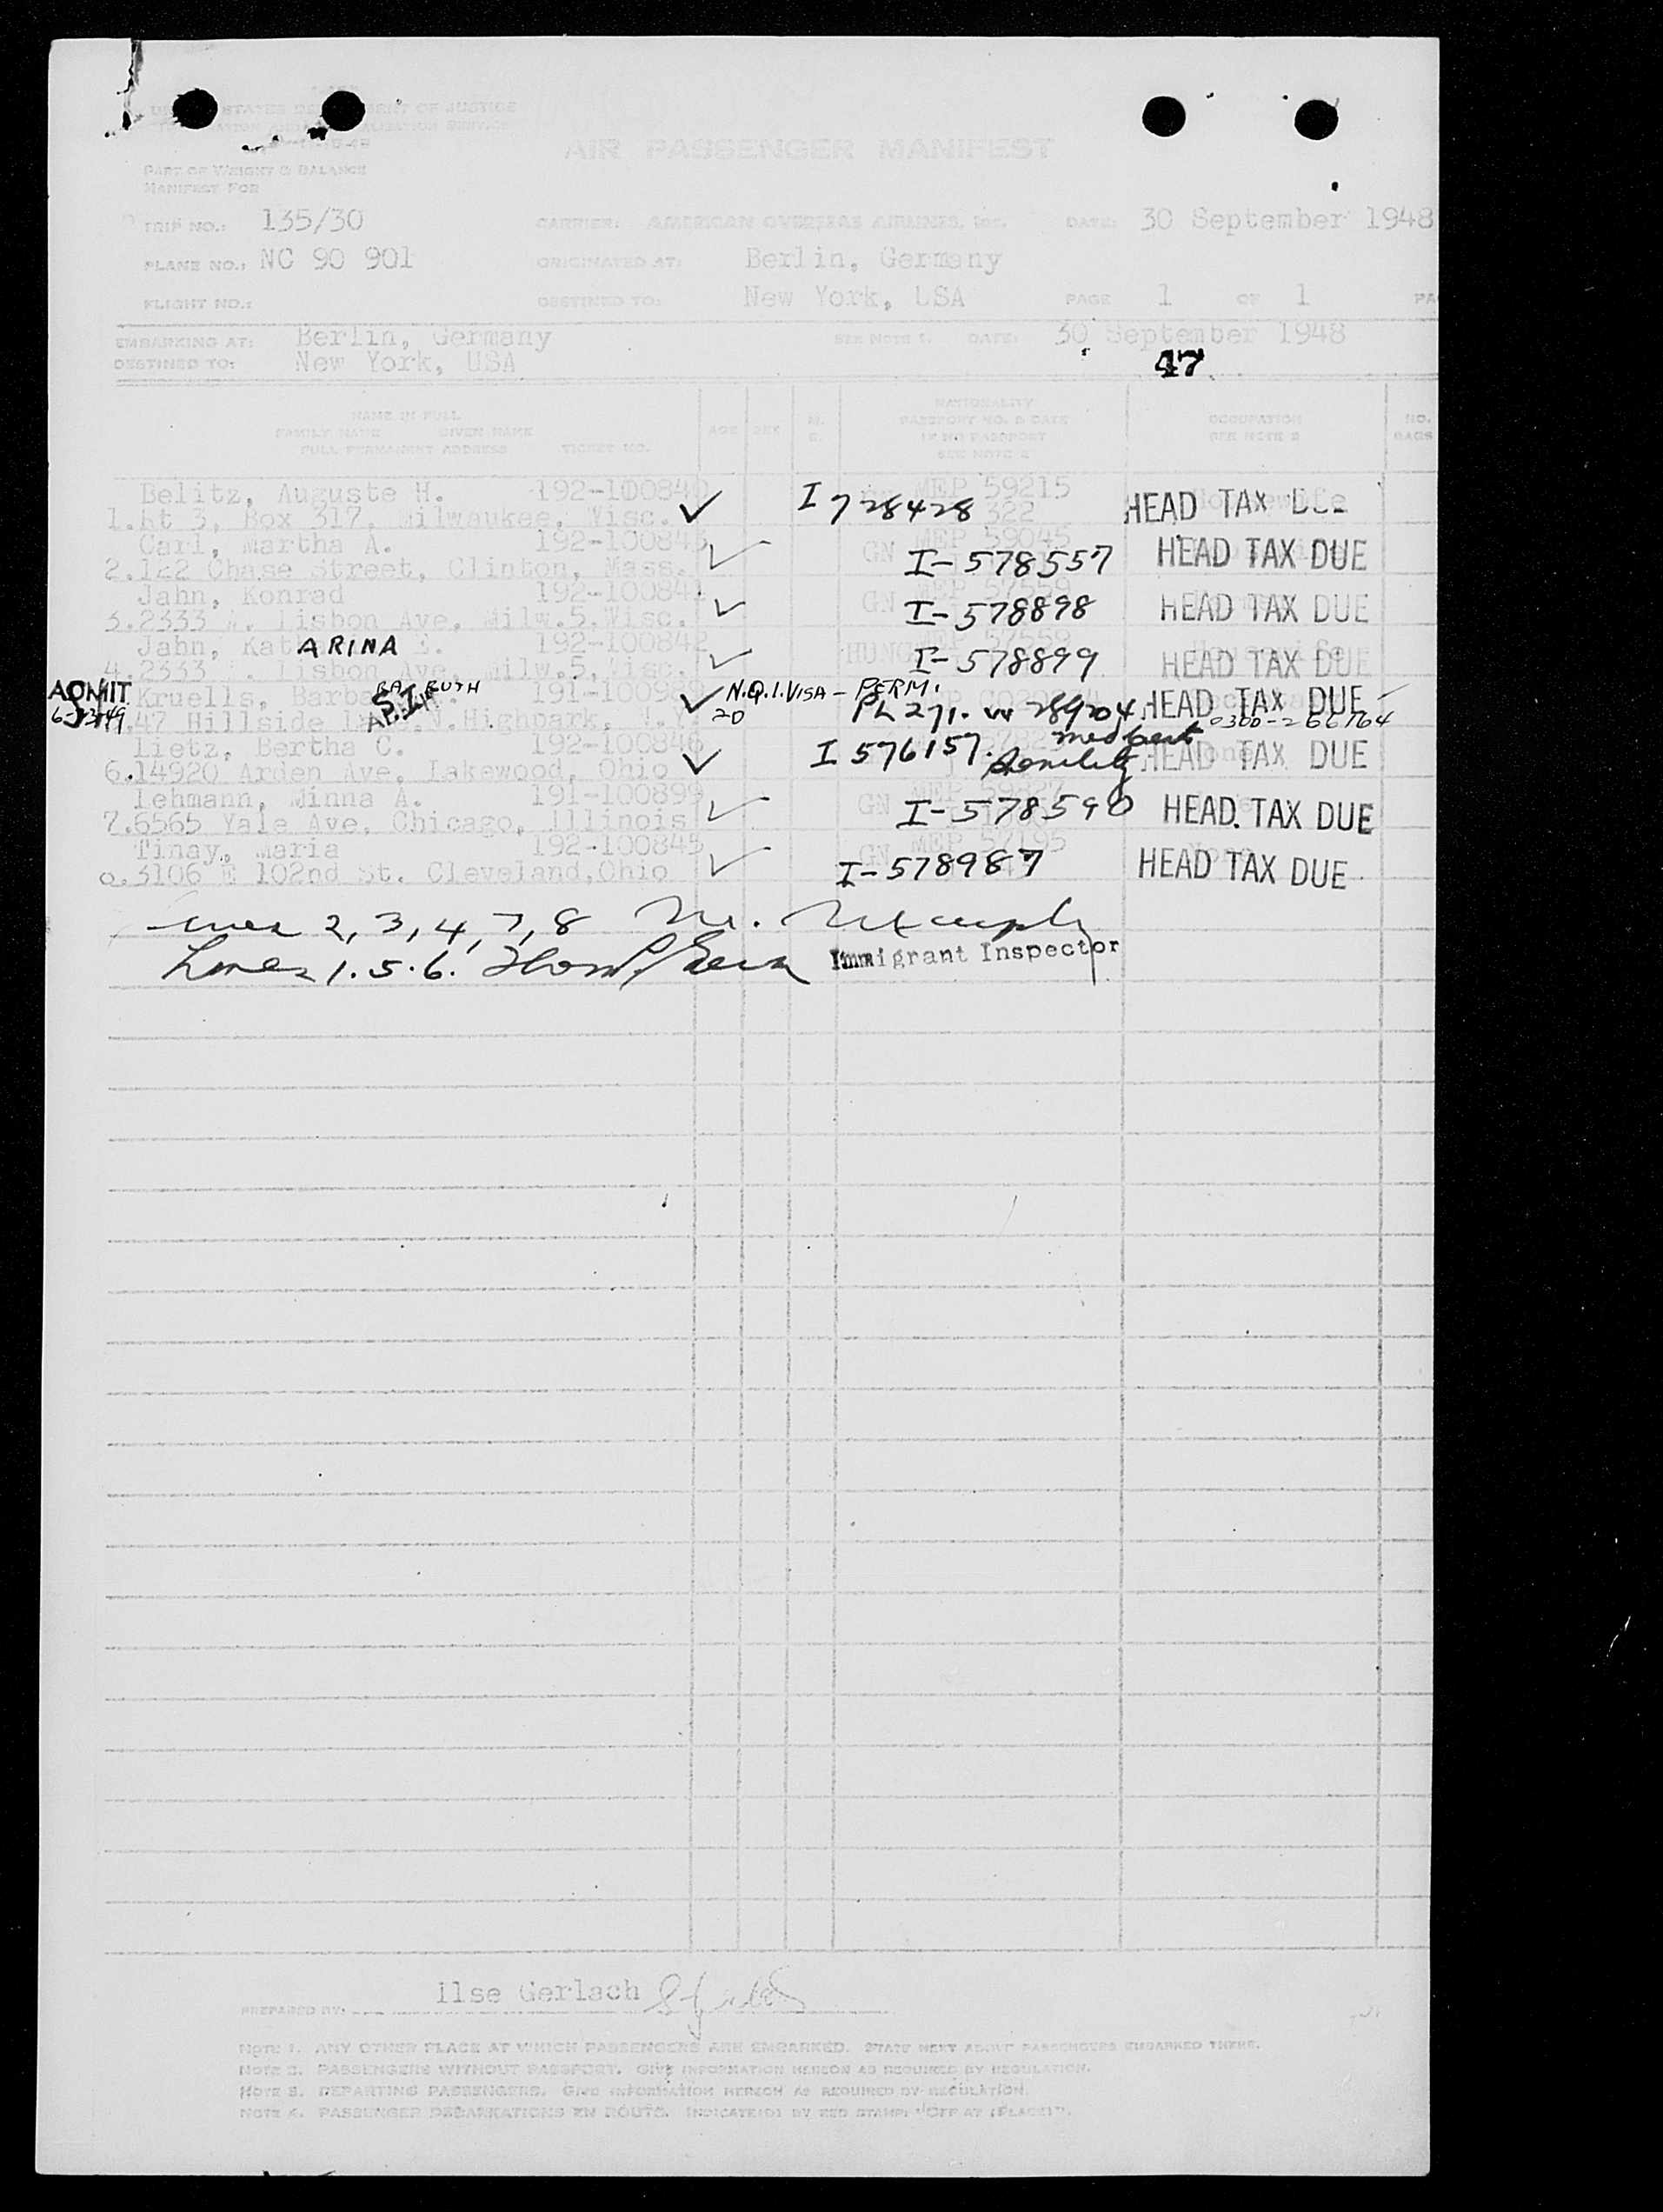 UNITED STATES DEPARTMENT OF JUSTICE
AIR PASSENGER MANIFEST
PART OF WEIGHT & BALANCE
MANIFEST FOR
TRIP NO.: 135/30 CARRIER: AMERICAN OVERSEAS AIRLINES, Inc. DATE: 30 September 1948
PLANE NO.: NC 90 901 ORIGINATED AT: Berlin, Germany
FLIGHT NO.: DESTINED TO: New York, USA PAGE 1 OF 1
EMBARKING AT: Berlin, Germany SEE NOTE 1. DATE: 30 September 1948
DESTINED TO: New York, USA
47
NAME IN FULL NATIONALITY
FAMILY NAME GIVEN NAME AGE SEX M. PASSPORT NO. & DATE OCCUPATION NO.
FULL PERMANENT ADDRESS TICKET NO. S. IF NO PASSPORT SEE NOTE 2 BAGS
SEE NOTE 2
Belitz, Auguste H. MEP 59215
1. Rt 3, Box 317, Milwaukee, Wisc. ✓ I 728428 322 HEAD TAX DUE
Carl, Martha A. 192-100843 MEP 59045
2. 122 Chase Street, Clinton, Mass. ✓ GN I-578557 HEAD TAX DUE
Jahn, Konrad 192-100841
3. 2333 Lisbon Ave, Milw.5, Wisc. ✓ GN I-578898 HEAD TAX DUE
Jahn, KatARINA 192-100842 57559
4. 2333 Lisbon Ave, Milw.5, Wisc. ✓ HUNG I-578899 HEAD TAX DUE
ADMIT Kruells, BarbaRA RUTH S.I. ✓ N.Q.I. VISA - PERM.
47 Hillside Highpark, 20 PL 271. HEAD TAX DUE
Lietz, Bertha C. 192-100846 med cert
6. 14920 Arden Ave, Lakewood, Ohio ✓ I 576157. Senility HEAD TAX DUE
Lehmann, Minna A. 191-100899 MEP 59827
7. 6565 Yale Ave, Chicago, Illinois ✓ GN I-578590 HEAD TAX DUE
Tinay, Maria 192-100845 MEP 57195
3106 E 102nd St. Cleveland, Ohio ✓ GN I-578987 HEAD TAX DUE
Lines 2, 3, 4, 7, 8
Lines 1. 5. 6. Immigrant Inspector
PREPARED BY: Ilse Gerlach
NOTE 1. ANY OTHER PLACE AT WHICH PASSENGERS ARE EMBARKED. STATE NEXT ABOVE PASSENGERS EMBARKED THERE.
NOTE 2. PASSENGERS WITHOUT PASSPORT. GIVE INFORMATION HEREON AS REQUIRED BY REGULATION.
NOTE 3. DEPARTING PASSENGERS. GIVE INFORMATION HEREON AS REQUIRED BY REGULATION.
NOTE 4. PASSENGER DEBARKATIONS EN ROUTE. INDICATE(D) BY RED STAMP: "OFF AT (PLACE)".